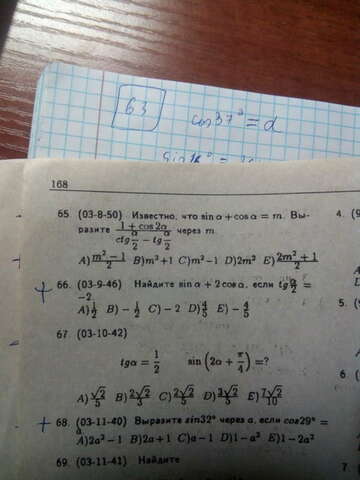 63
cos37° = d
168
65 (03-8-50) Известно, что sin α + cos α = m. Вы-
разите (1 + cos 2α)/(ctg α/2 − tg α/2) через m.
A) (m² − 1)/2 B) m² + 1 C) m² − 1 D) 2m² E) (2m² + 1)/2
+ 66. (03-9-46) Найдите sin α + 2 cos α, если tg α/2 =
−2.
A) 1/2 B) − 1/2 C) − 2 D) 4/5 E) − 4/5
67 (03-10-42)
tgα = 1/2 sin(2α + π/4) =?
A) √2/5 B) 2√2/3 C) 2√2/5 D) 3√2/5 E) 7√2/10
+ 68. (03-11-40) Выразите sin32° через a, если cos29° =
a
A) 2a² − 1 B) 2a + 1 C) a − 1 D) 1 − a² E) 1 − 2a²
69. (03-11-41) Найдите
4. (9
5. (9
6. (
7